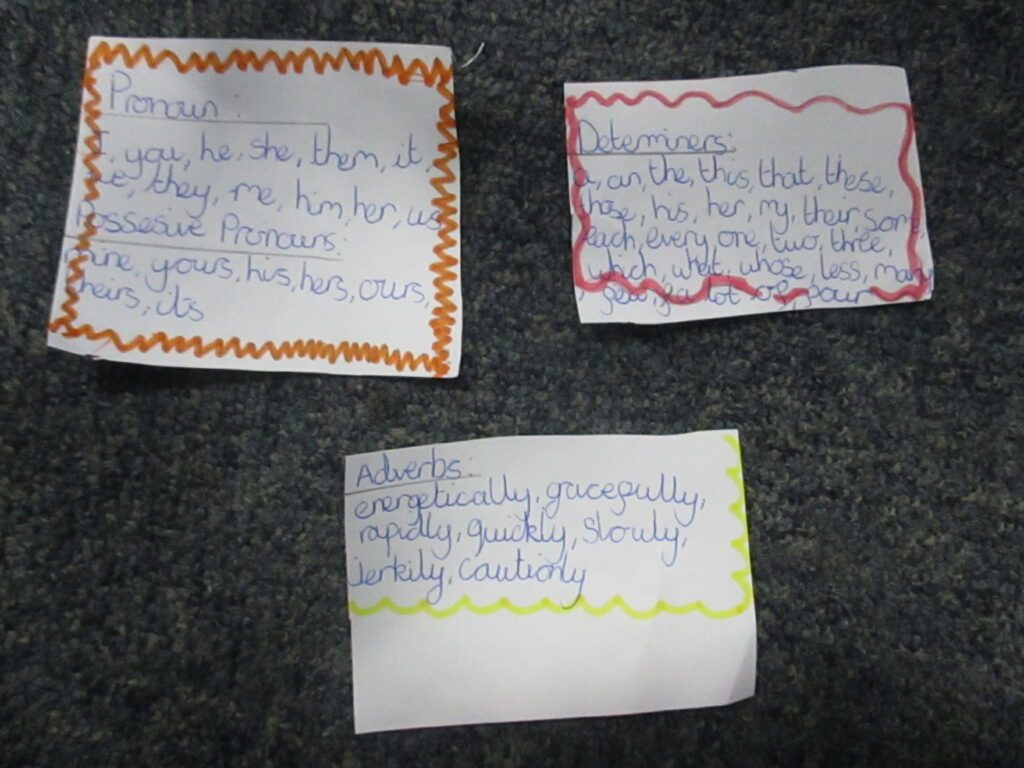 Pronoun.
I, you, he, she, them, it,
they, me, him, her, us
Possesive Pronouns:
mine, yours, his, hers, ours,
theirs, its
Determiners:
a, an, the, this, that, these,
those, his, her, my, their, some
each, every, one, two, three,
which, what, whose, less, many
, few, a lot of,
Adverbs:
energetically, gracefully,
rapidly, quickly, slowly,
Jerkily, cautionly